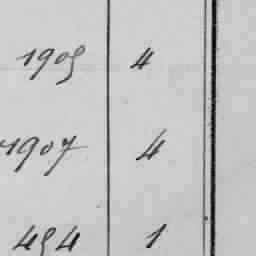 1905 4
1907 4
454 1